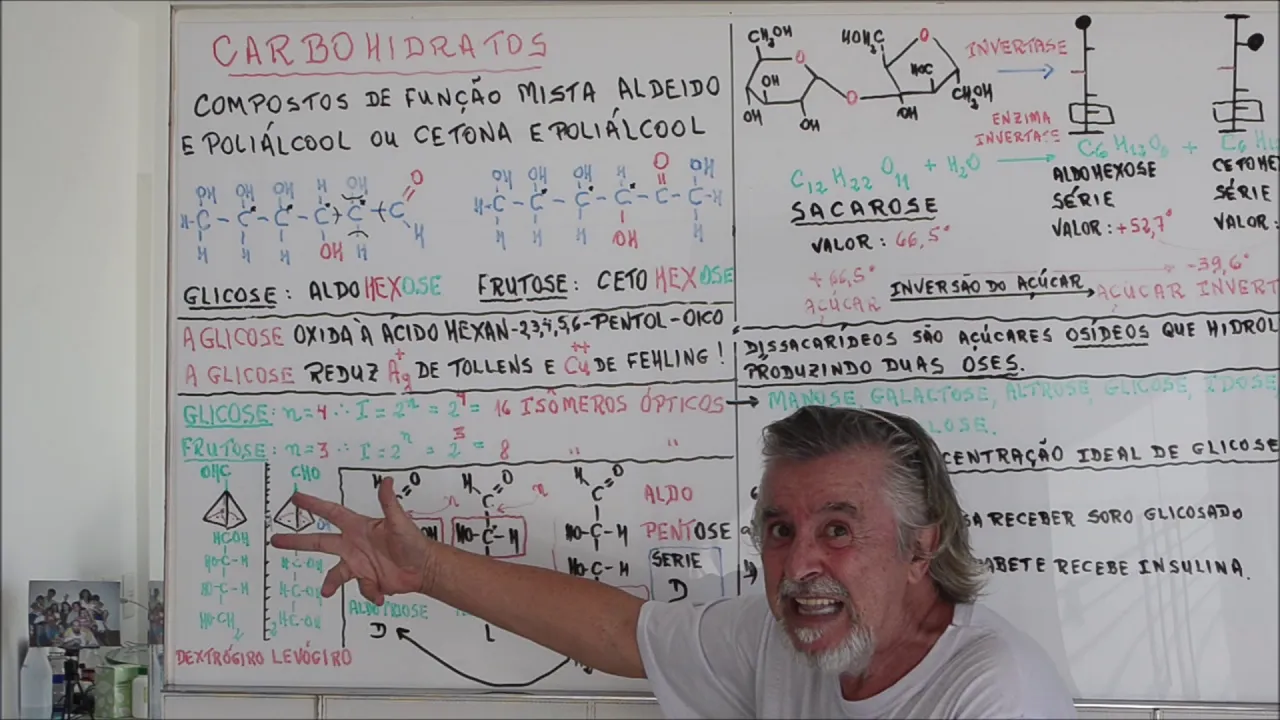 CARBOHIDRATOS
COMPOSTOS DE FUNÇÃO MISTA ALDEIDO
E POLIÁLCOOL OU CETONA E POLIÁLCOOL
OH OH OH H OH O
H-C-C-C-C-C-C
H H H OH H H
OH OH OH H O OH
H-C-C-C-C-C-C-H
H H H OH H
GLICOSE: ALDOHEXOSE
FRUTOSE: CETO HEXOSE
A GLICOSE OXIDA À ÁCIDO HEXAN-2,3,4,5,6-PENTOL-OICO
A GLICOSE REDUZ Ag+ DE TOLLENS E Cu++ DE FEHLING!
GLICOSE: n=4 ∴ I=2^n = 2^4 = 16 ISÔMEROS ÓPTICOS →
FRUTOSE: n=3 ∴ I=2^n = 2^3 = 8 " "
OHC
HCOH
HO-C-H
HO-C-H
HO-CH2
CHO
H-C-OH
H-C-OH
H-C-OH
DEXTRÓGIRO LEVÓGIRO
H O
C
HO-C-H
H O
C
HO-C-H
HO-C-H
D
L
ALDO
PENTOSE
SÉRIE
D
CH2OH
O
OH
OH
OH
O
HOH2C
O
HOC
OH
CH2OH
INVERTASE
→
ENZIMA
INVERTASE
C12 H22 O11 + H2O →
+
SACAROSE
VALOR: 66,5°
ALDOHEXOSE
SÉRIE
VALOR: +52,7°
SÉRIE
VALOR:
+66,5°
AÇÚCAR
INVERSÃO DO AÇÚCAR
-39,6°
AÇÚCAR INVERT
DISSACARÍDEOS SÃO AÇÚCARES OSÍDEOS QUE HIDROL
PRODUZINDO DUAS OSES.
MANOSE, GALACTOSE, ALTROSE, GLICOSE, IDOSE
LOSE.
CENTRAÇÃO IDEAL DE GLICOSE
SA RECEBER SORO GLICOSADO
ABETE RECEBE INSULINA.